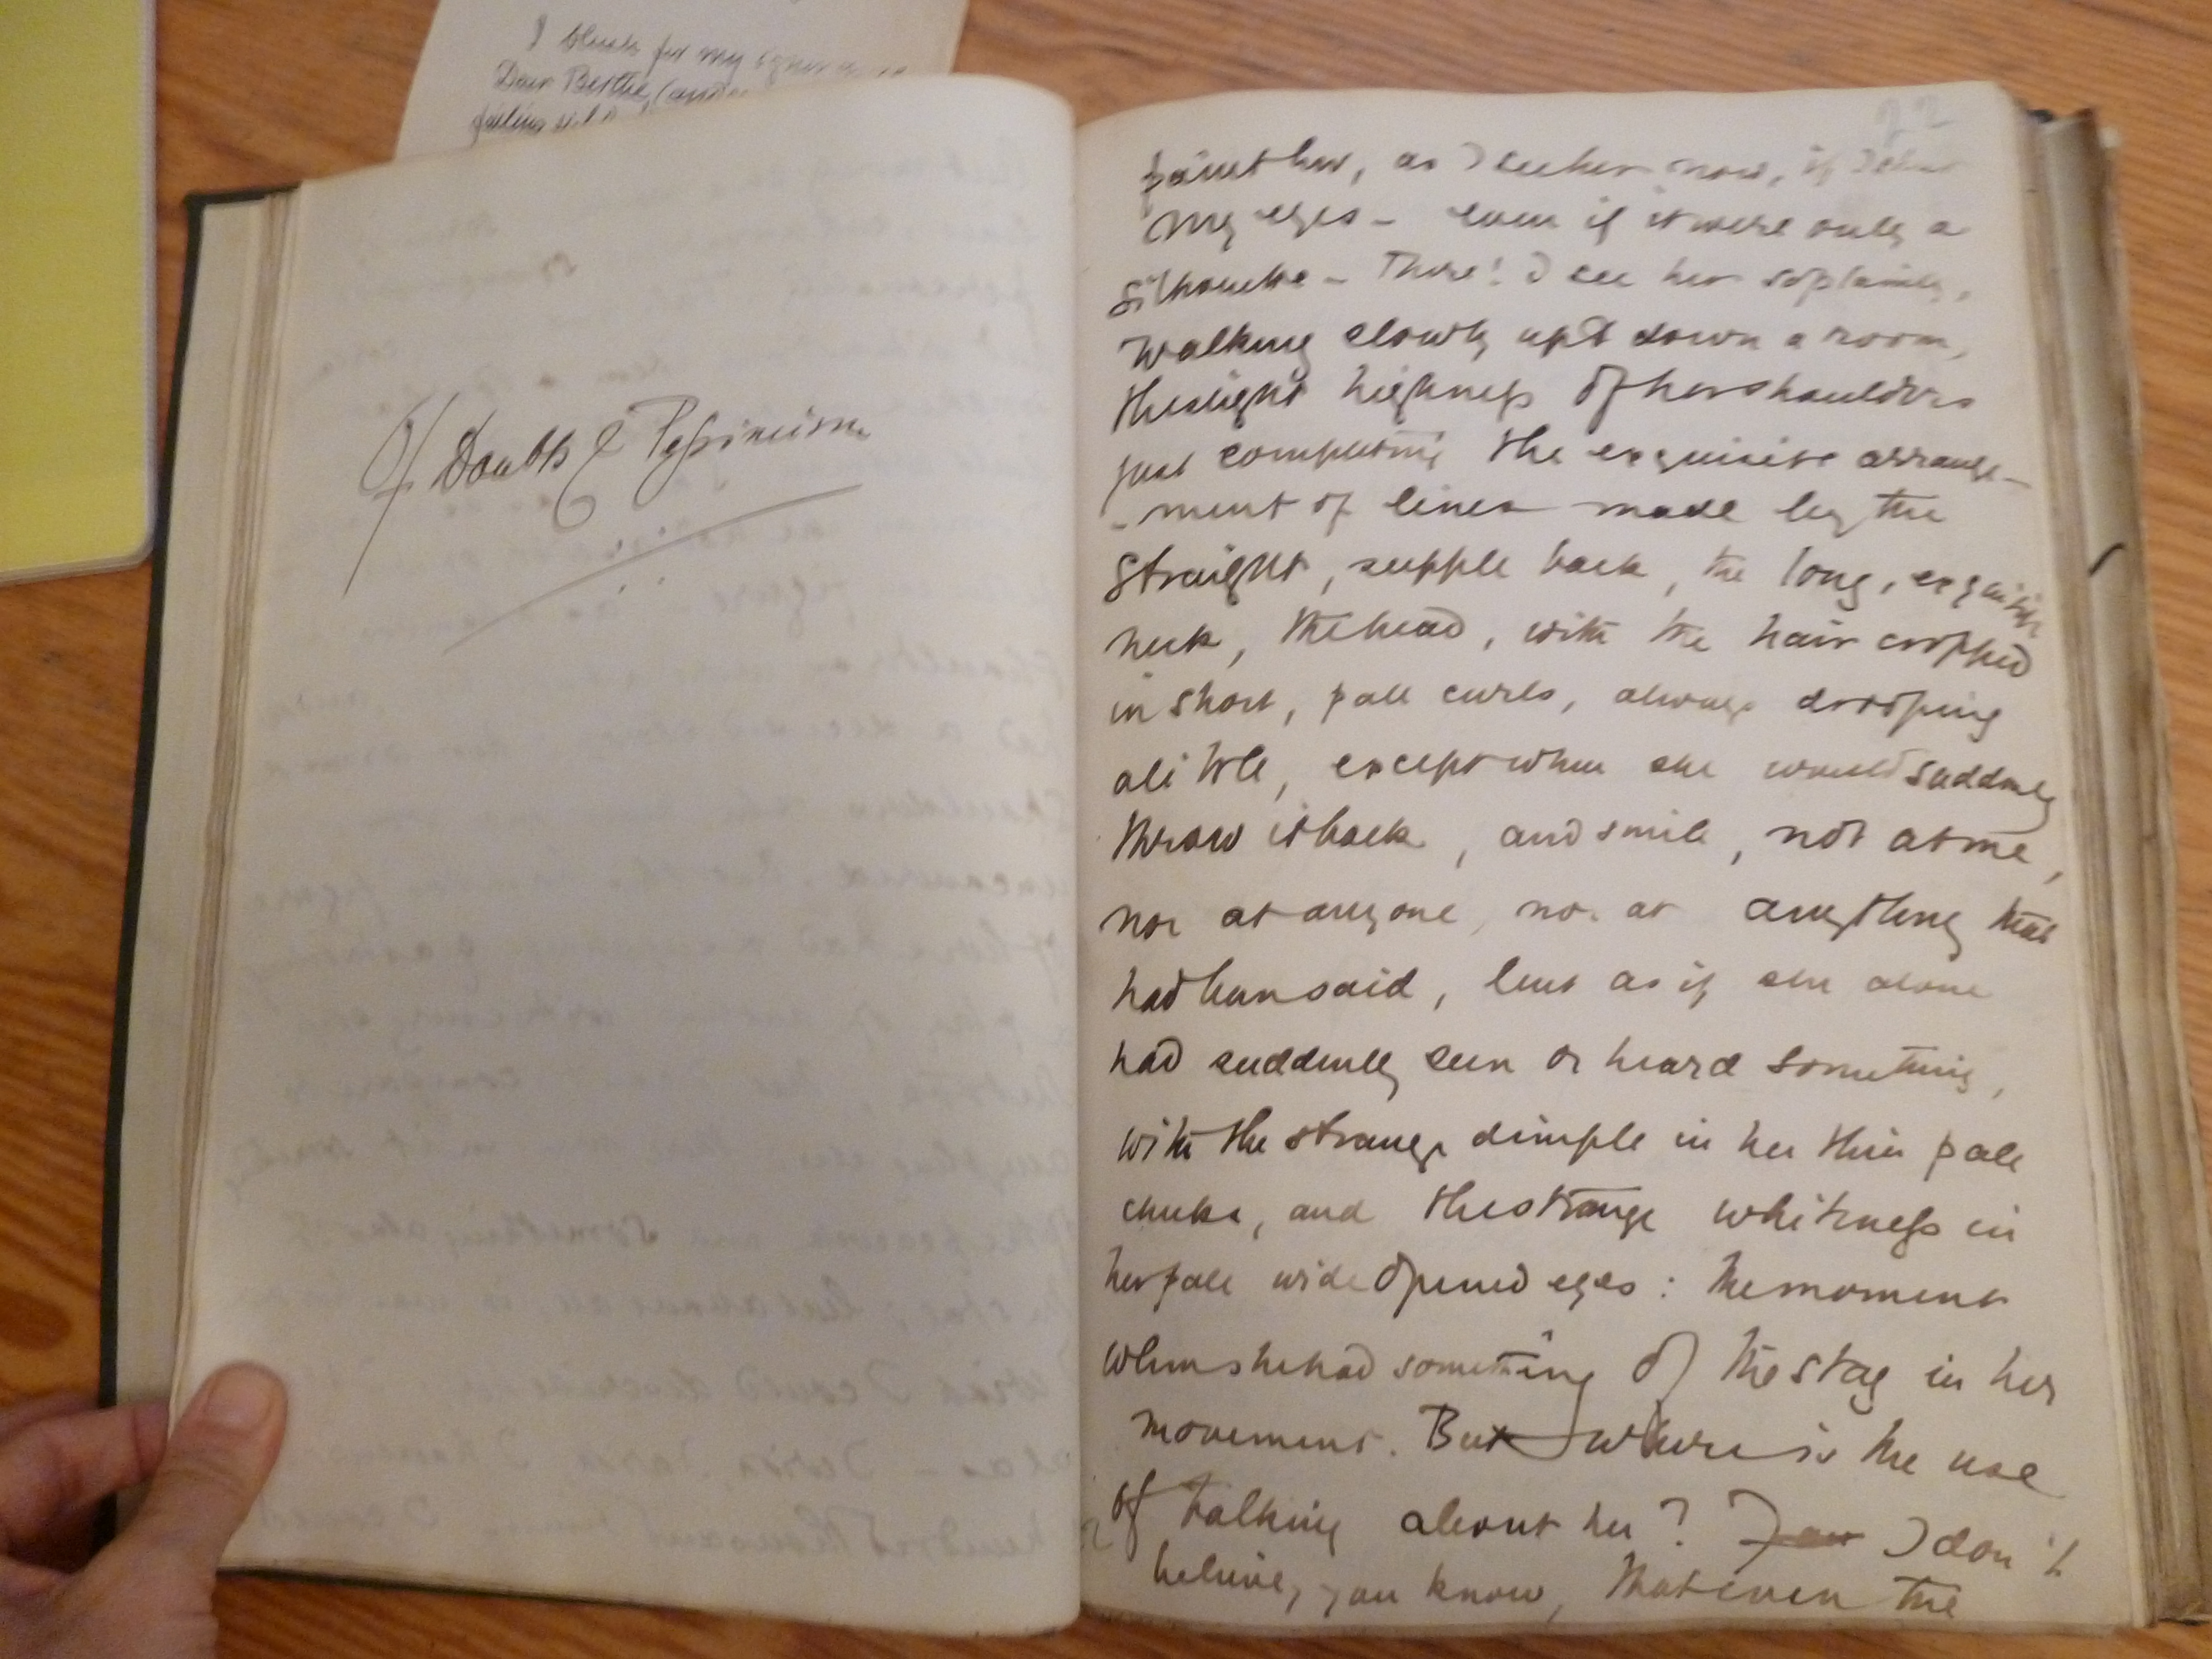 I blush for my
Dear Berthe,
Of Doubts & Pessimism
22
paint her, as I see her now, if I shut
my eyes - even if it were only a
silhouette - There! I see her so plainly,
walking slowly up & down a room,
the slight highness of her shoulders
just completing the exquisite arrange-
-ment of lines made by the
straight, supple back, the long, exquisite
neck, the head, with the hair cropped
in short, pale curls, always drooping
a little, except when she would suddenly
throw it back, and smile, not at me,
nor at anyone, nor at anything that
had been said, but as if she alone
had suddenly seen or heard something,
with the strange dimple in her thin pale
cheeks, and the strange whiteness in
her pale wide opened eyes: the moment
when she had something of the stag in her
movement. But where is the use
of talking about her? I don't
believe, you know, that even the